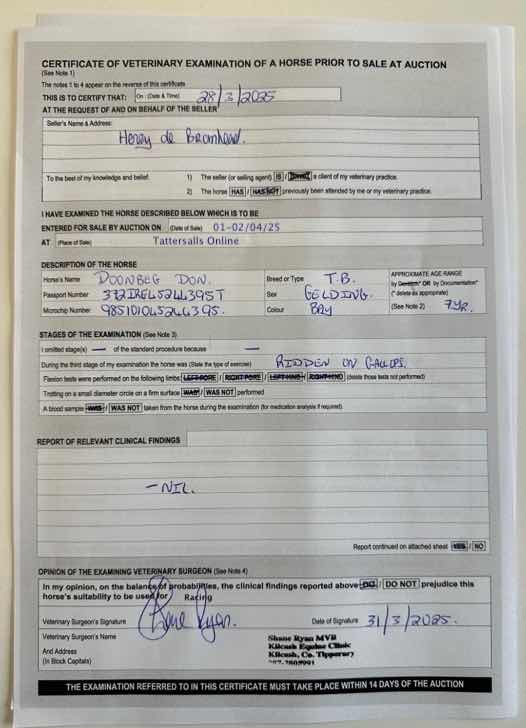 CERTIFICATE OF VETERINARY EXAMINATION OF A HORSE PRIOR TO SALE AT AUCTION
(See Note 1)
The notes 1 to 4 appear on the reverse of this certificate
THIS IS TO CERTIFY THAT: On : (Date & Time) 28/3/2025
AT THE REQUEST OF AND ON BEHALF OF THE SELLER
Seller's Name & Address:
Henry de Bromhead.
To the best of my knowledge and belief: 1) The seller (or selling agent) IS / a client of my veterinary practice.
2) The horse HAS / HAS NOT previously been attended by me or my veterinary practice.
I HAVE EXAMINED THE HORSE DESCRIBED BELOW WHICH IS TO BE
ENTERED FOR SALE BY AUCTION ON (Date of Sale) 01-02/04/25
AT (Place of Sale) Tattersalls Online
DESCRIPTION OF THE HORSE
Horse's Name DOONBEG DON. Breed or Type T.B. APPROXIMATE AGE RANGE
by Dentition* OR by Documentation*
Passport Number Sex GELDING. (* delete as appropriate)
Microchip Number Colour BAY (See Note 2) 7yr.
STAGES OF THE EXAMINATION (See Note 3)
I omitted stage(s) — of the standard procedure because —
During the third stage of my examination the horse was (State the type of exercise) RIDDEN ON GALLOPS.
Flexion tests were performed on the following limbs LEFT FORE / RIGHT FORE / LEFT HIND / RIGHT HIND (delete those tests not performed)
Trotting on a small diameter circle on a firm surface WAS / WAS NOT performed
A blood sample WAS / WAS NOT taken from the horse during the examination (for medication analysis if required)
REPORT OF RELEVANT CLINICAL FINDINGS
- NIL.
Report continued on attached sheet YES / NO
OPINION OF THE EXAMINING VETERINARY SURGEON (See Note 4)
In my opinion, on the balance of probabilities, the clinical findings reported above DO / DO NOT prejudice this
horse's suitability to be used for Racing
Veterinary Surgeon's Signature Shane Ryan. Date of Signature 31/3/2025.
Veterinary Surgeon's Name Shane Ryan MVB
And Address Kilcash Equine Clinic
(In Block Capitals) Kilcash, Co. Tipperary
THE EXAMINATION REFERRED TO IN THIS CERTIFICATE MUST TAKE PLACE WITHIN 14 DAYS OF THE AUCTION